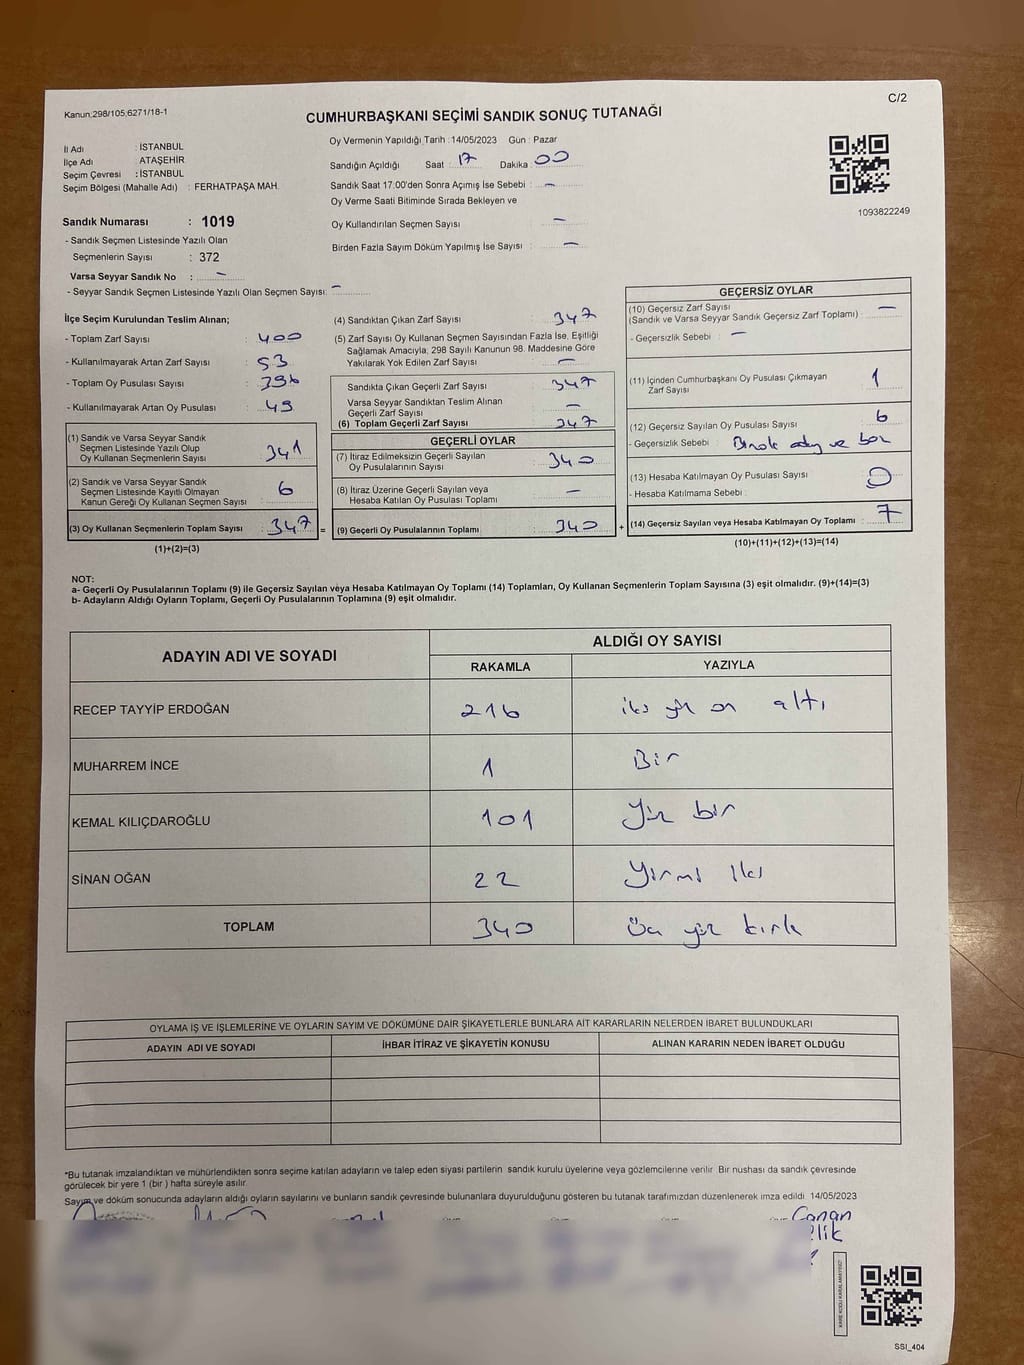 Kanun:298/105;6271/18-1
C/2
CUMHURBAŞKANI SEÇİMİ SANDIK SONUÇ TUTANAĞI
İl Adı : İSTANBUL
İlçe Adı : ATAŞEHİR
Seçim Çevresi : İSTANBUL
Seçim Bölgesi (Mahalle Adı) : FERHATPAŞA MAH.
Sandık Numarası : 1019
- Sandık Seçmen Listesinde Yazılı Olan
Seçmenlerin Sayısı : 372
Varsa Seyyar Sandık No : –
- Seyyar Sandık Seçmen Listesinde Yazılı Olan Seçmen Sayısı: –
Oy Vermenin Yapıldığı Tarih : 14/05/2023 Gün : Pazar
Sandığın Açıldığı Saat : 17 Dakika : 00
Sandık Saat 17:00'den Sonra Açımış İse Sebebi : –
Oy Verme Saati Bitiminde Sırada Bekleyen ve
Oy Kullandırılan Seçmen Sayısı –
Birden Fazla Sayım Döküm Yapılmış İse Sayısı : –
1093822249
İlçe Seçim Kurulundan Teslim Alınan;
- Toplam Zarf Sayısı : 400
- Kullanılmayarak Artan Zarf Sayısı : 53
- Toplam Oy Pusulası Sayısı : 396
- Kullanılmayarak Artan Oy Pusulası : 49
(1) Sandık ve Varsa Seyyar Sandık
Seçmen Listesinde Yazılı Olup
Oy Kullanan Seçmenlerin Sayısı 341
(2) Sandık ve Varsa Seyyar Sandık
Seçmen Listesinde Kayıtlı Olmayan
Kanun Gereği Oy Kullanan Seçmen Sayısı 6
(3) Oy Kullanan Seçmenlerin Toplam Sayısı : 347 =
(1)+(2)=(3)
(4) Sandıktan Çıkan Zarf Sayısı : 347
(5) Zarf Sayısı Oy Kullanan Seçmen Sayısından Fazla İse, Eşitliği
Sağlamak Amacıyla; 298 Sayılı Kanunun 98. Maddesine Göre
Yakılarak Yok Edilen Zarf Sayısı –
Sandıkta Çıkan Geçerli Zarf Sayısı : 347
Varsa Seyyar Sandıktan Teslim Alınan
Geçerli Zarf Sayısı –
(6) Toplam Geçerli Zarf Sayısı : 347
GEÇERLİ OYLAR
(7) İtiraz Edilmeksizin Geçerli Sayılan
Oy Pusulalarının Sayısı : 340
(8) İtiraz Üzerine Geçerli Sayılan veya
Hesaba Katılan Oy Pusulaları Toplamı –
(9) Geçerli Oy Pusulalarının Toplamı : 340 +
GEÇERSİZ OYLAR
(10) Geçersiz Zarf Sayısı
(Sandık ve Varsa Seyyar Sandık Geçersiz Zarf Toplamı) : –
- Geçersizlik Sebebi : –
(11) İçinden Cumhurbaşkanı Oy Pusulası Çıkmayan
Zarf Sayısı 1
(12) Geçersiz Sayılan Oy Pusulası Sayısı 6
- Geçersizlik Sebebi : ve
(13) Hesaba Katılmayan Oy Pusulası Sayısı 0
- Hesaba Katılmama Sebebi :
(14) Geçersiz Sayılan veya Hesaba Katılmayan Oy Toplamı : 7
(10)+(11)+(12)+(13)=(14)
NOT:
a- Geçerli Oy Pusulalarının Toplamı (9) ile Geçersiz Sayılan veya Hesaba Katılmayan Oy Toplamı (14) Toplamları, Oy Kullanan Seçmenlerin Toplam Sayısına (3) eşit olmalıdır. (9)+(14)=(3)
b- Adayların Aldığı Oyların Toplamı, Geçerli Oy Pusulalarının Toplamına (9) eşit olmalıdır.
ADAYIN ADI VE SOYADI
ALDIĞI OY SAYISI
RAKAMLA YAZIYLA
RECEP TAYYİP ERDOĞAN 216 iki yüz on altı
MUHARREM İNCE 1 Bir
KEMAL KILIÇDAROĞLU 101 Yüz bir
SİNAN OĞAN 22 Yirmi iki
TOPLAM 340 Üç yüz kırk
OYLAMA İŞ VE İŞLEMLERİNE VE OYLARIN SAYIM VE DÖKÜMÜNE DAİR ŞİKAYETLERLE BUNLARA AİT KARARLARIN NELERDEN İBARET BULUNDUKLARI
ADAYIN ADI VE SOYADI İHBAR İTİRAZ VE ŞİKAYETİN KONUSU ALINAN KARARIN NEDEN İBARET OLDUĞU
*Bu tutanak imzalandıktan ve mühürlendikten sonra seçime katılan adayların ve talep eden siyasi partilerin sandık kurulu üyelerine veya gözlemcilerine verilir. Bir nushası da sandık çevresinde
görülecek bir yere 1 (bir ) hafta süreyle asılır.
Sayım ve döküm sonucunda adayların aldığı oyların sayılarını ve bunların sandık çevresinde bulunanlara duyurulduğunu gösteren bu tutanak tarafımızdan düzenlenerek imza edildi. 14/05/2023
Canan
SSI_404